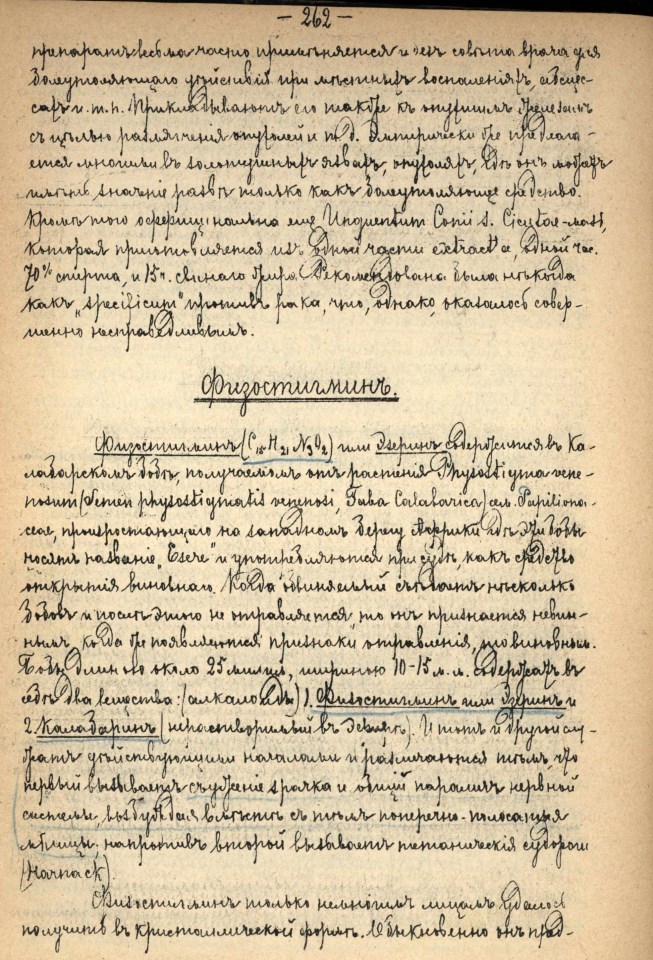 — 262 —
препаратъ весьма часто примѣняется и безъ совѣта врача для
болеутоляющаго дѣйствія при мѣстныхъ воспаленіяхъ, абсцес-
сахъ и т. п. Прикладываютъ его также къ опухшимъ железамъ
съ цѣлью размягченія опухолей и т. д. Эмпирически же предлага-
ется многими въ золотушныхъ язвахъ, опухоляхъ, гдѣ онъ можетъ
имѣть значеніе развѣ только какъ болеутоляющее средство.
Кромѣ того оффицинальна еще Unguentum Conii s. Cicutae - мазь,
которая приготовляется изъ одной части extract'a, одной час.
70% спирта, и 15 ч. свинаго жира. Рекомендована была нѣкогда
какъ „specificum" противъ рака, что, однако, оказалось совер-
шенно несправедливымъ.
Физостигминъ.
Физостигминъ (C15 H21 N3 O2) или Эзеринъ содержится въ Ка-
лабарскомъ бобѣ, получаемомъ отъ растенія Physostigma vene-
nosum (Semen physostigmatis venenosi, Faba Calabarica) сем. Papiliona-
ceae, произростающаго на западномъ берегу Африки гдѣ эти бобы
носятъ названіе „Esere" и употребляются при судѣ, какъ средство
открытія виновнаго. Когда обвиняемый съѣдаетъ нѣсколько
бобовъ и послѣ этого не отравляется, то онъ признается невин-
нымъ, когда же появляются признаки отравленія, то виновнымъ.
Бобы длиною около 25 милим., шириною 10-15 м.м. содержатъ въ
себѣ два вещества: (алкалоиды) 1. Физостигминъ или Эзеринъ и
2. Калабаринъ (нерастворимый въ Эѳирѣ). И тотъ и другой слу-
жатъ дѣйствующимъ началомъ и различаются тѣмъ, что
первый вызываетъ съуженіе зрачка и общій параличъ нервной
системы, возбуждая вмѣстѣ съ тѣмъ поперечно-полосатыя
мышцы, напротивъ второй вызываетъ тетаническія судороги
(Harnack).
Физостигминъ только немногимъ лицамъ удалось
получить въ кристаллической формѣ. Обыкновенно онъ пред-